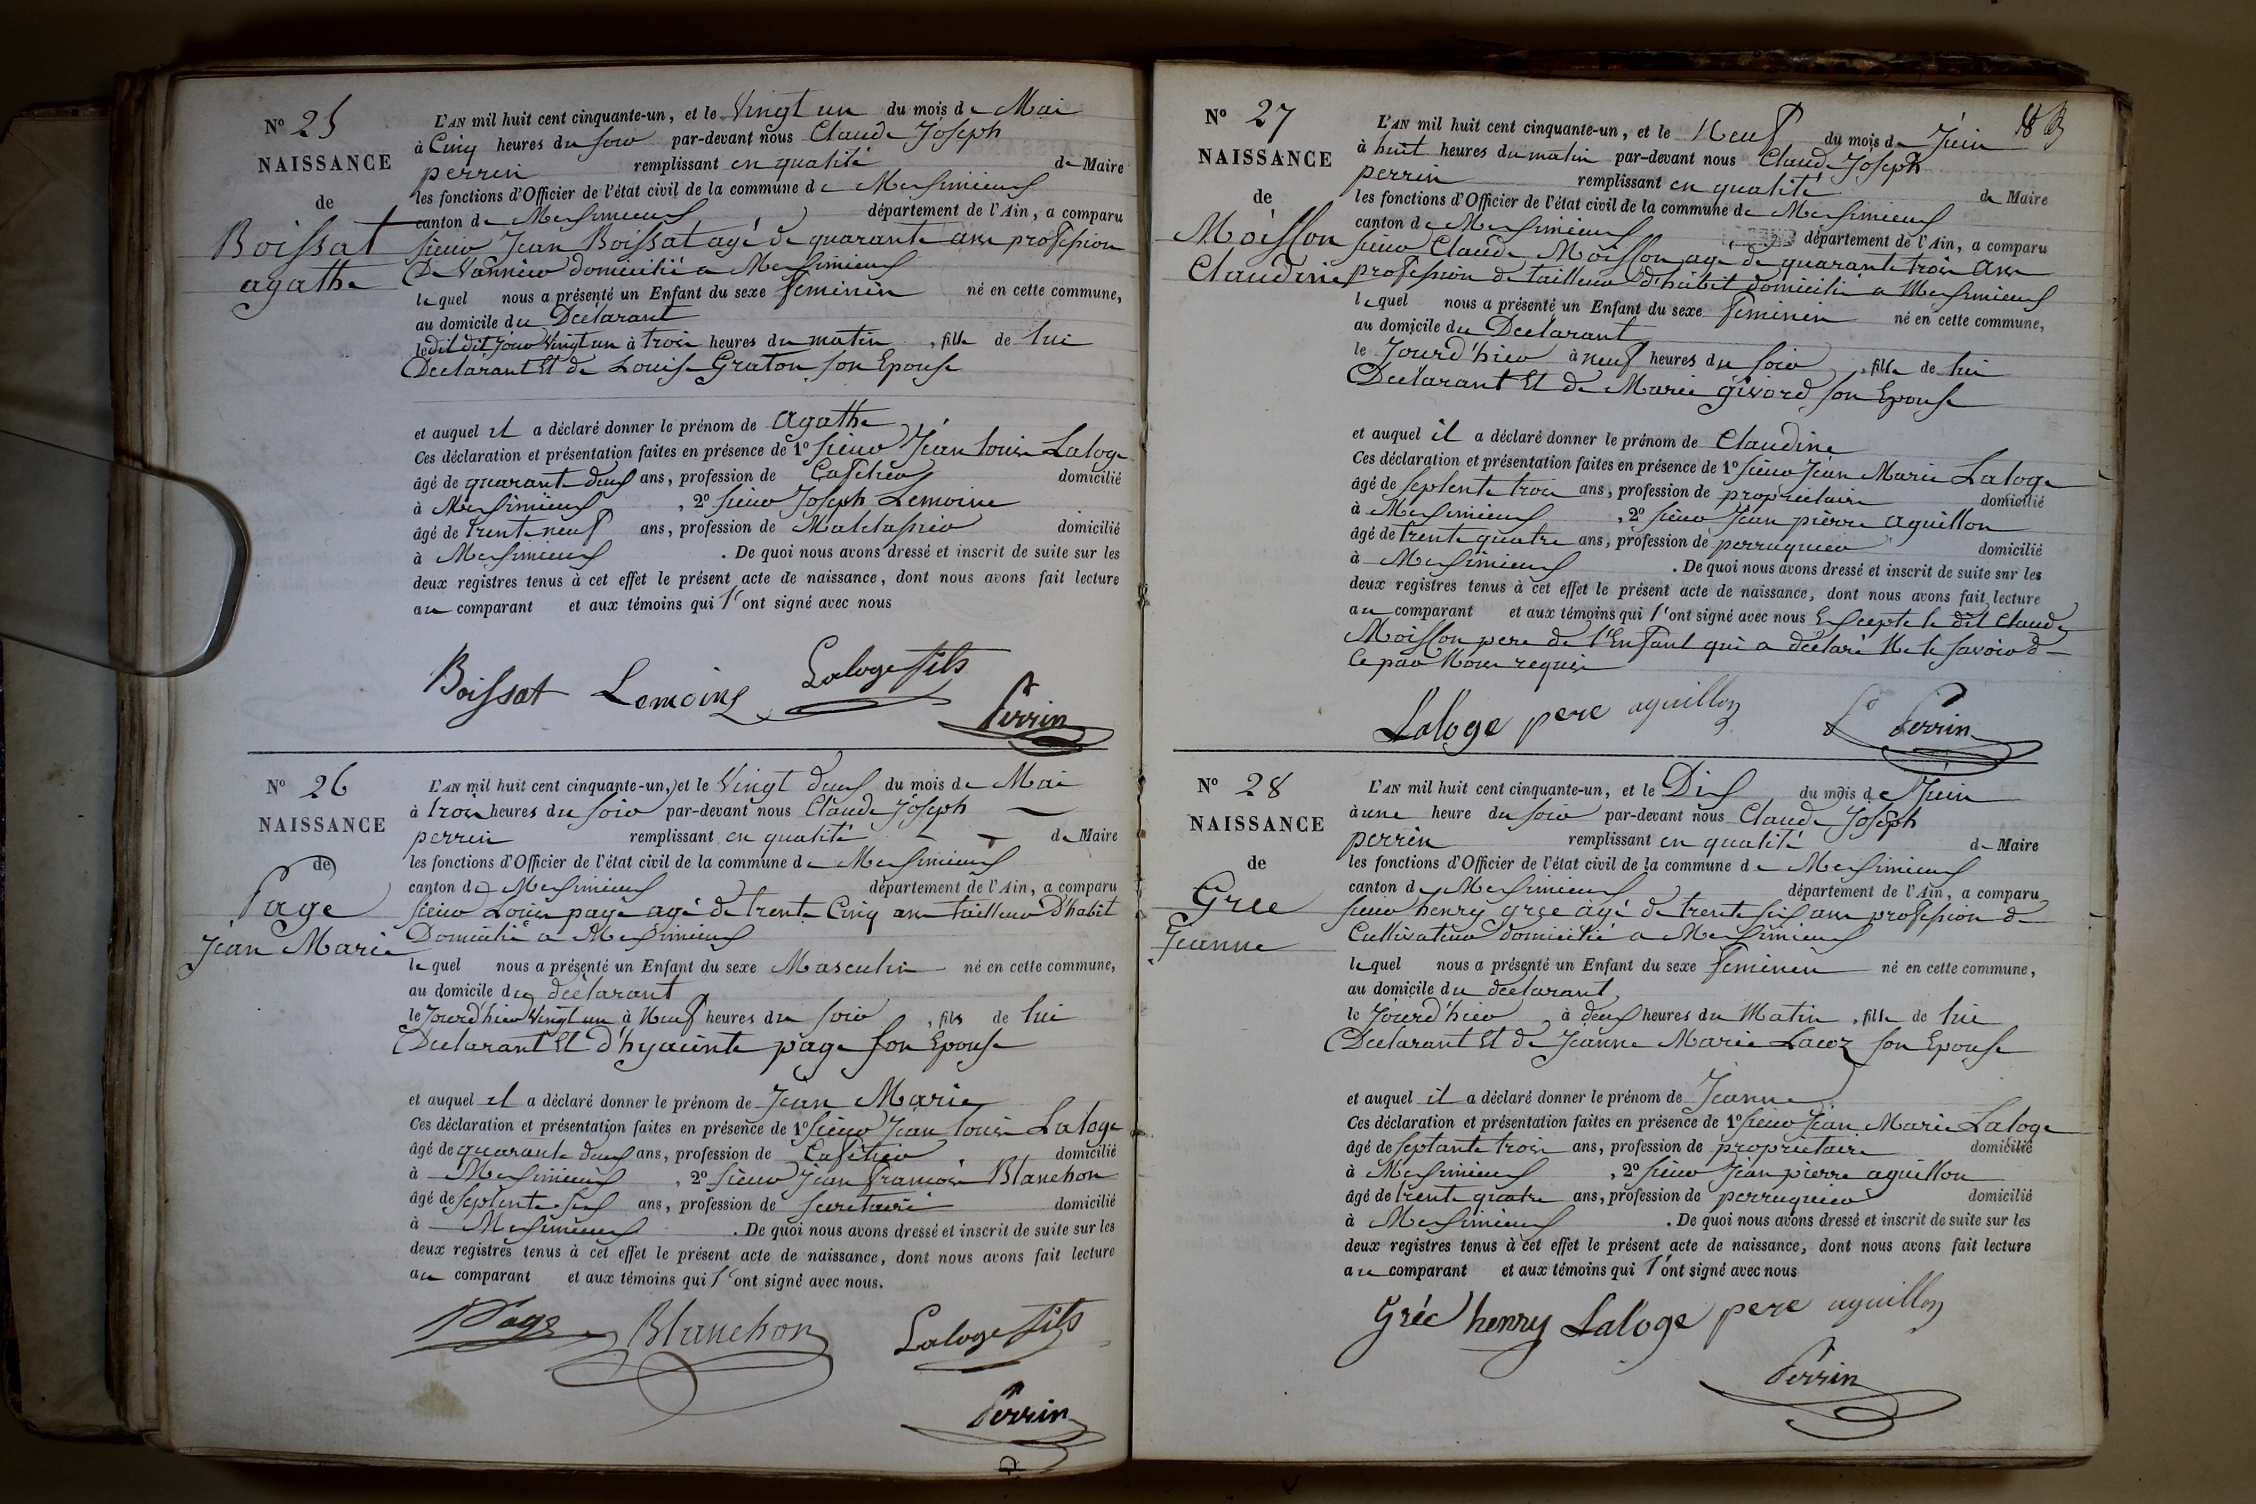 N° 25
NAISSANCE
de
Boissat
agathe
L'AN mil huit cent cinquante-un, et le Vingt un du mois de Mai
à Cinq heures du soir par-devant nous Claude Joseph
perrin remplissant en qualité de Maire
les fonctions d'Officier de l'état civil de la commune de Messimieux
canton de Messimieux département de l'Ain, a comparu
sieur Jean Boissat agé de quarante ans profession
De Vannier domicilié a Messimieux
lequel nous a présenté un Enfant du sexe feminin né en cette commune,
au domicile du Déclarant
le dit jour Vingt un à trois heures du matin, fille de lui
Déclarant Et de Louise Graton son Epouse
et auquel il a déclaré donner le prénom de agathe
Ces déclaration et présentation faites en présence de 1° sieur Jean louis Laloge
âgé de quarant deux ans, profession de Cafetier domicilié
à Messimieux, 2° sieur Joseph Lemoine
âgé de trente neuf ans, profession de Matelassier domicilié
à Messimieux. De quoi nous avons dressé et inscrit de suite sur les
deux registres tenus à cet effet le présent acte de naissance, dont nous avons fait lecture
au comparant et aux témoins qui l'ont signé avec nous
Boissat Lemoine Laloge fils
Perrin
N° 26
NAISSANCE
de
Page
Jean Marie
L'AN mil huit cent cinquante-un, et le Vingt deux du mois de Mai
à trois heures du soir par-devant nous Claude Joseph
perrin remplissant en qualité de Maire
les fonctions d'Officier de l'état civil de la commune de Messimieux
canton de Messimieux département de l'Ain, a comparu
sieur Louis page agé de trente Cinq ans tailleur D'habit
Domicilié a Messimieux
lequel nous a présenté un Enfant du sexe Masculin né en cette commune,
au domicile du déclarant
le Jourd'hier Vingt un à Neuf heures du soir, fils de lui
Déclarant Et d'hyacinte page son Epouse
et auquel il a déclaré donner le prénom de Jean Marie
Ces déclaration et présentation faites en présence de 1° sieur Jean louis Laloge
âgé de quarante deux ans, profession de Cafetier domicilié
à Messimieux, 2° sieur Jean françois Blanchon
âgé de septente six ans, profession de secretaire domicilié
à Messimieux. De quoi nous avons dressé et inscrit de suite sur les
deux registres tenus à cet effet le présent acte de naissance, dont nous avons fait lecture
au comparant et aux témoins qui l'ont signé avec nous.
Page Blanchon Laloge fils
Perrin
N° 27
NAISSANCE
de
Moisson
Claudine
L'AN mil huit cent cinquante-un, et le Neuf du mois de Juin
à huit heures du matin par-devant nous Claude Joseph
perrin remplissant en qualité de Maire
les fonctions d'Officier de l'état civil de la commune de Messimieux
canton de Messimieux département de l'Ain, a comparu
sieur Claude Moisson age de quarante trois ans
profession de tailleur d'habit domicilié a Messimieux
lequel nous a présenté un Enfant du sexe feminin né en cette commune,
au domicile du Declarant
le Jourd'hier à neuf heures du soir, fille de lui
Déclarant Et de Marie givord son Epouse
et auquel il a déclaré donner le prénom de Claudine
Ces déclaration et présentation faites en présence de 1° sieur Jean Marie Laloge
âgé de septente trois ans, profession de propriétaire domicilié
à Messimieux, 2° sieur Jean pierre aguillon
âgé de trente quatre ans, profession de perruquier domicilié
à Messimieux. De quoi nous avons dressé et inscrit de suite sur les
deux registres tenus à cet effet le présent acte de naissance, dont nous avons fait lecture
au comparant et aux témoins qui l'ont signé avec nous Excepte le dit Claude
Moisson pere de l'Enfant qui a déclaré Ne le savoir d
Ce par Nous requis
Laloge pere aguillon Perrin
N° 28
NAISSANCE
de
Gree
Jeanne
L'AN mil huit cent cinquante-un, et le Dix du mois de Juin
à une heure du soir par-devant nous Claude Joseph
perrin remplissant en qualité de Maire
les fonctions d'Officier de l'état civil de la commune de Messimieux
canton de Messimieux département de l'Ain, a comparu
sieur henry gree âgé de trente six ans profession de
Cultivateur domicilié a Messimieux
lequel nous a présenté un Enfant du sexe feminin né en cette commune,
au domicile du declarant
le Jourd'hier à deux heures du Matin, fille de lui
Declarant Et de Jeanne Marie Lacoz son Epouse
et auquel il a déclaré donner le prénom de Jeanne
Ces déclaration et présentation faites en présence de 1° sieur Jean Marie Laloge
âgé de septante trois ans, profession de proprietaire domicilié
à Messimieux, 2° sieur Jean pierre aguillon
âgé de trente quatre ans, profession de perruquier domicilié
à Messimieux. De quoi nous avons dressé et inscrit de suite sur les
deux registres tenus à cet effet le présent acte de naissance, dont nous avons fait lecture
au comparant et aux témoins qui l'ont signé avec nous
Gréé henry Laloge pere aguillon
Perrin